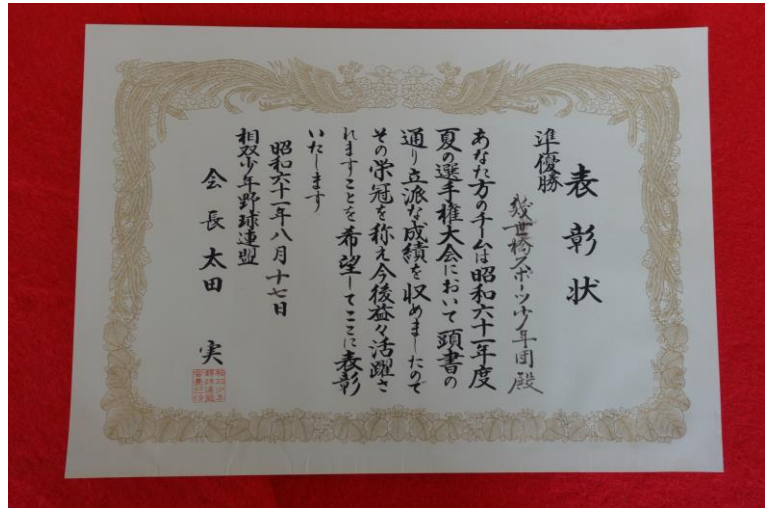 表彰状
準優勝
幾世橋スポーツ少年団殿
あなた方のチームは昭和六十一年度
夏の選手権大会において頭書の
通り立派な成績を収めましたので
その栄冠を称え今後益々活躍さ
れますことを希望してここに表彰
いたします
昭和六十一年八月十七日
相双少年野球連盟
会長太田実